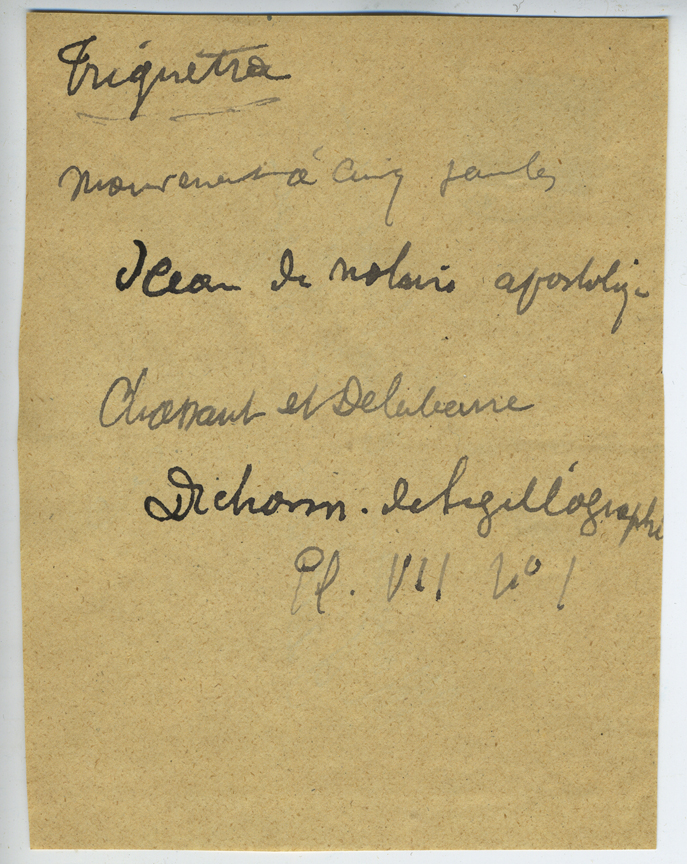 Triquetra
mouvement à cinq jambes
Sceau de notaire apostoliq
Chassant et Delabarre
Dictionn. de sigillographi
Pl. VII No 1